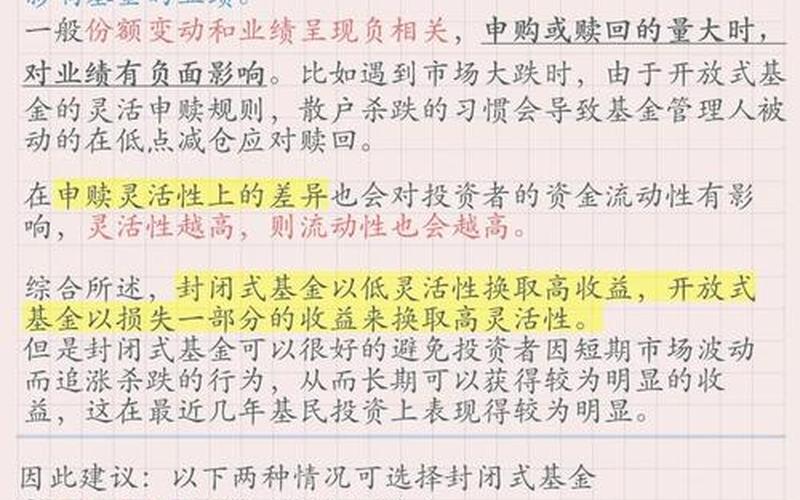 影响基金的业绩。
一般份额变动和业绩呈现负相关，申购或赎回的量大时，
对业绩有负面影响。比如遇到市场大跌时，由于开放式基
金的灵活申赎规则，散户杀跌的习惯会导致基金管理人被
动的在低点减仓应对赎回。
在申赎灵活性上的差异也会对投资者的资金流动性有影
响，灵活性越高，则流动性也会越高。
综合所述，封闭式基金以低灵活性换取高收益，开放式
基金以损失一部分的收益来换取高灵活性。
但是封闭式基金可以很好的避免投资者因短期市场波动
而追涨杀跌的行为，从而长期可以获得较为明显的收
益，这在最近几年基民投资上表现得较为明显。
因此建议：以下两种情况可选择封闭式基金